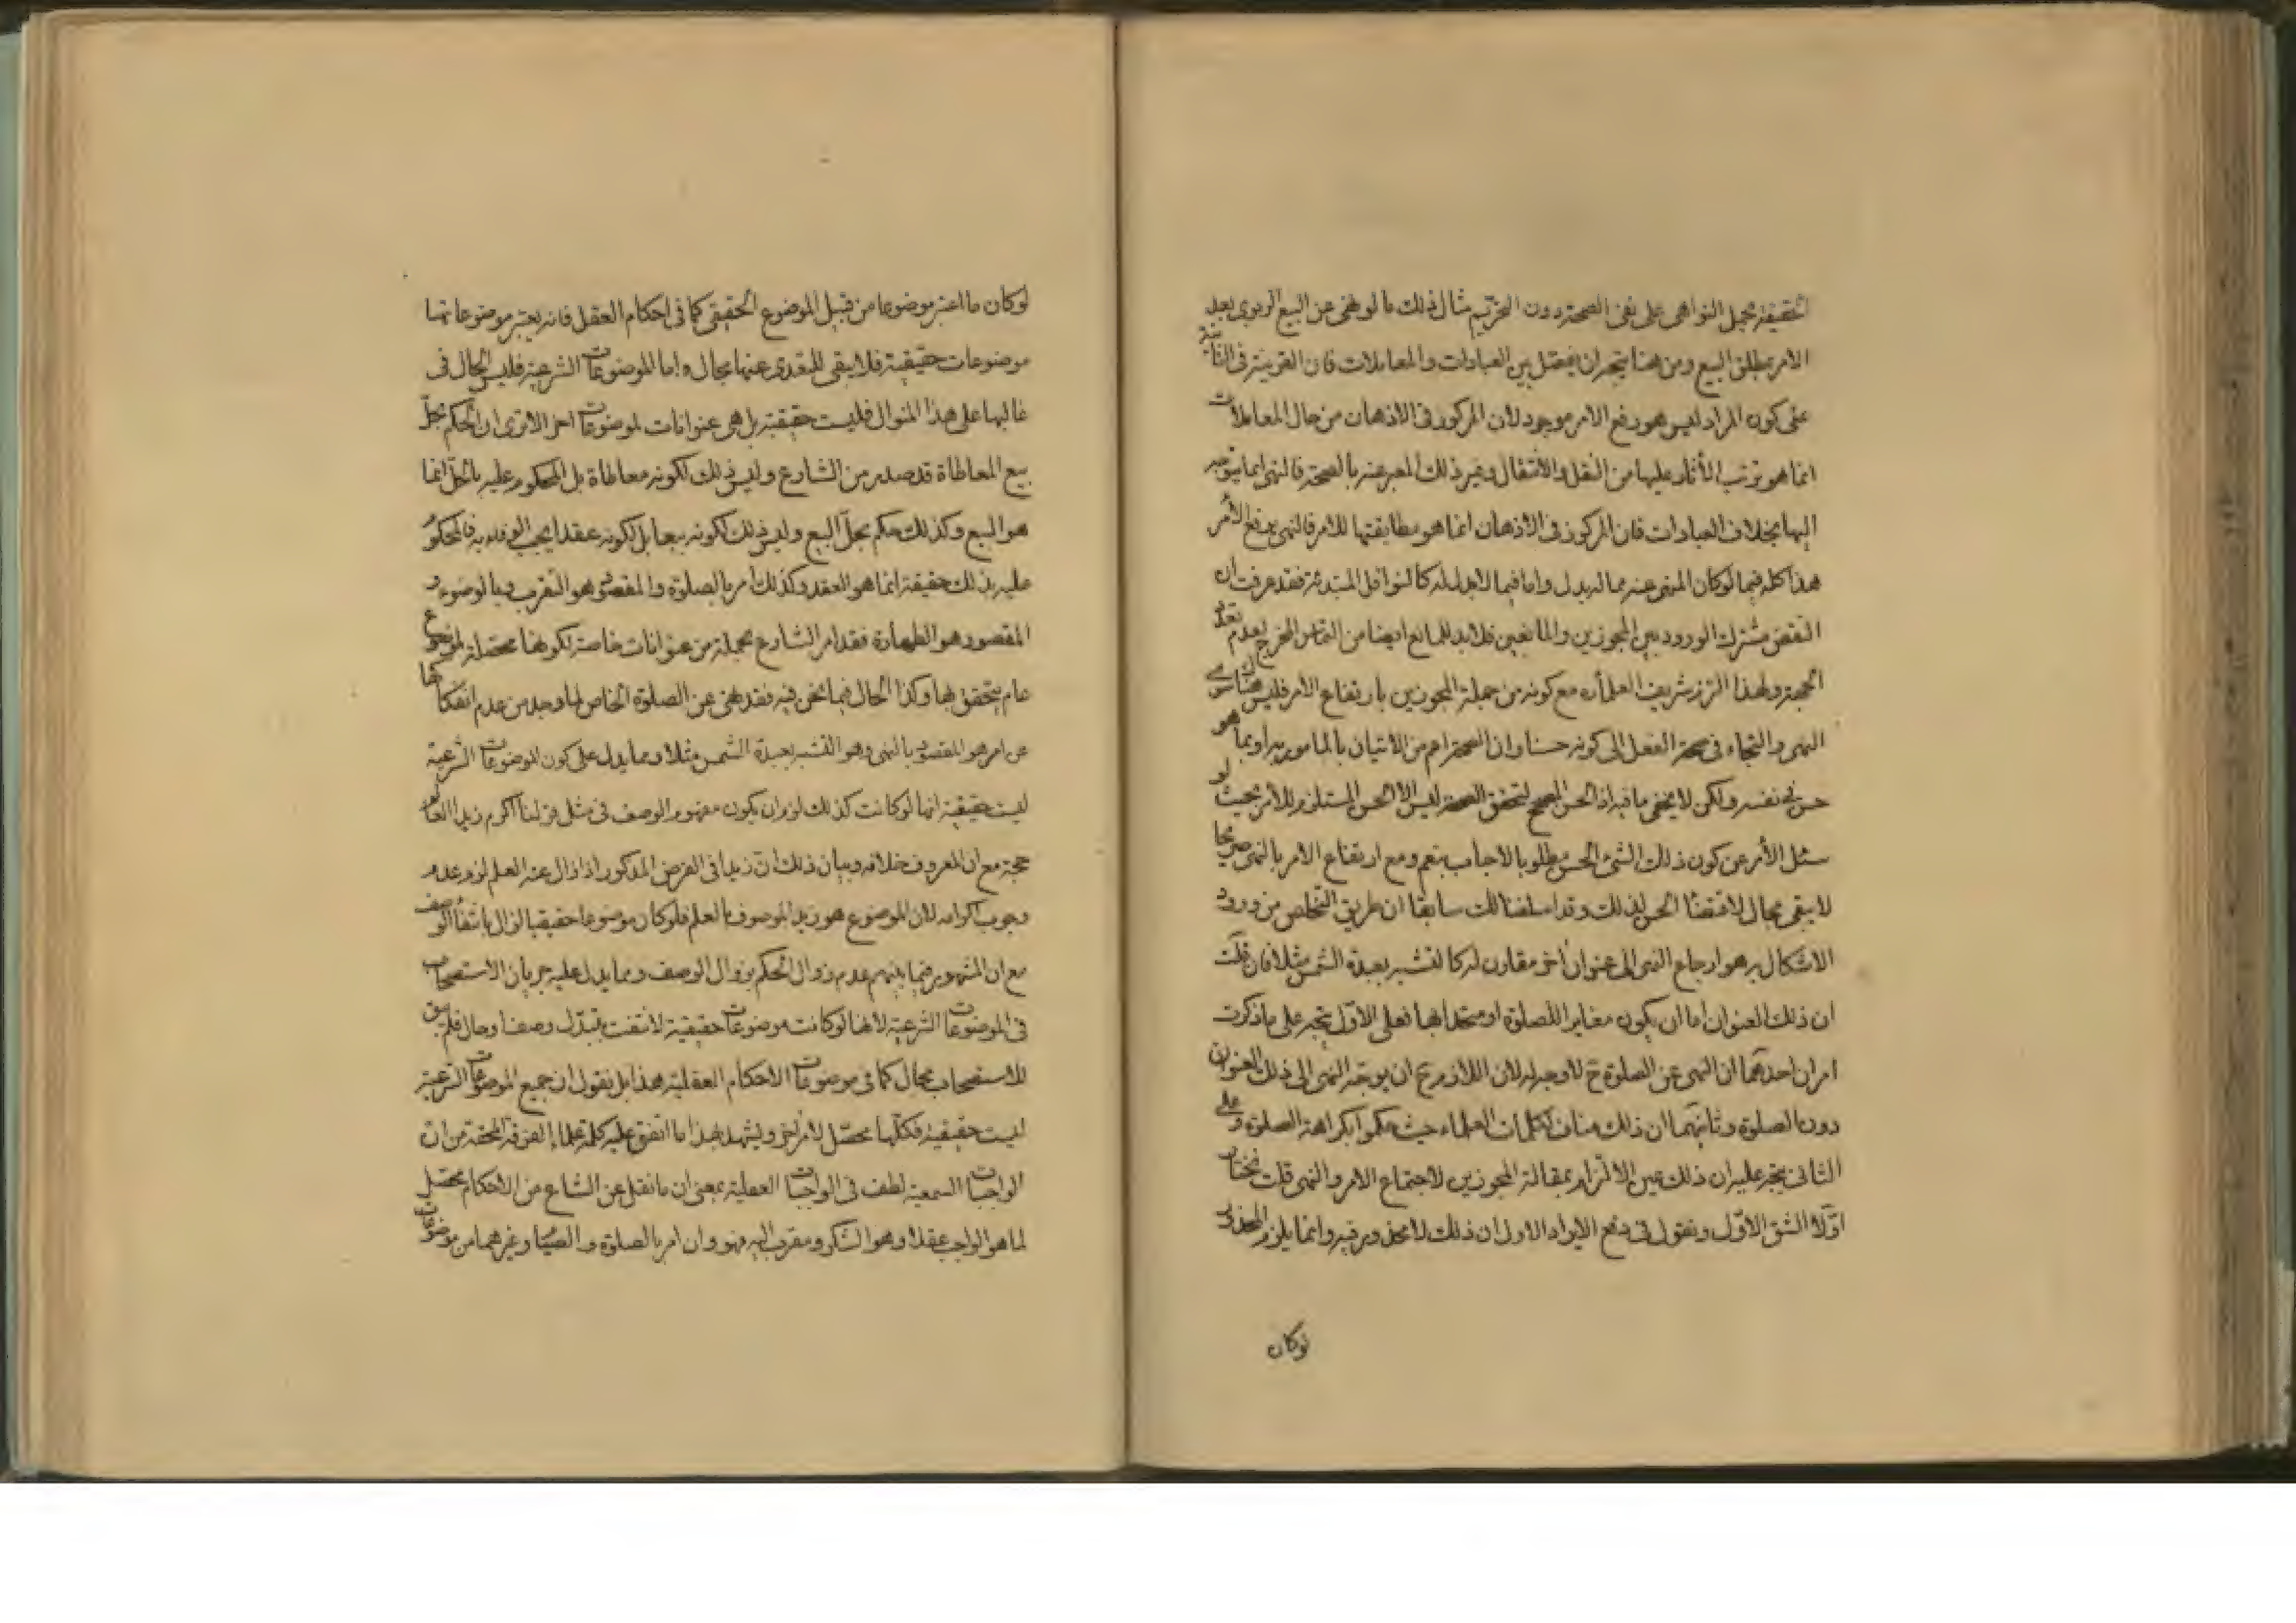 الحقيقة بحمل النواهى على نفى الصحة دون التحريم مثال ذلك ما لو نهى عن البيع الربوى بعد
الامر بمطلق البيع ومن هنا يتجه ان يفصل بين العبادات والمعاملات فان القرينة فى الثانية
على كون المراد ليس هو رفع الامر موجود لان المركوز فى الاذهان من حال المعاملات
انما هو ترتب الأثار عليها من النقل والانتقال وغير ذلك المعبر عنه بالصحة فالنهى انما يتوجه
اليها بخلاف العبادات فان المركوز فى الاذهان انما هو مطابقتها للامر فالنهى يرفع الأمر
هذا كله فيما لو كان المنهى عنه مما له بدل واما فيما لا بدل له كالنوافل المبتدئة فقد عرفت ان
النقض مشترك الورود بين المجوزين والمانعين فلا بد للمانع ايضا من التماس المخرج بعدم تعدد
الجهة ولهذا التزم شريف العلماء ره مع كونه من جملة المجوزين بارتفاع الامر فليس هناك سوى
النهى والتجاء فى صحة الفعل الى كونه حسنا وان الصحة اعم من الاتيان بالمامور به او بما هو
حسن فى نفسه ولكن لا يخفى ما فيه اذ الحسن المصحح لتحقق الصحة ليس الا الحسن المستلزم للأمر بحيث لو
سئل الأمر عن كون ذلك الشئ الحسن مطلوبا لاجاب بنعم ومع ارتفاع الامر بالنهى صريحا
لا يبقى مجال لاقتضاء الحسن لذلك وقد اسلفنا لك سابقا ان طريق التخلص من ورود
الاشكال به هو ارجاع النهى الى عنوان أخر مقارن له كالتشبه بعبدة الشمس مثلا فان قلت
ان ذلك العنوان اما ان يكون مغايرا للصلوة او متحدا بها فعلى الاوّل يتجه على ما ذكرت
امران احدهما ان النهى عن الصلوة ح لا وجه له لان اللازم ح ان يوجّه النهى الى ذلك العنوان
دون الصلوة وثانيهما ان ذلك مناف لكلمات العلماء حيث حكموا بكراهة الصلوة وعلى
الثانى يتجه عليه ان ذلك عين الالتزام بمقالة المجوزين لاجتماع الامر والنهى قلت نختار
اوّلا الشق الاوّل ونقول فى دفع الايراد الاول ان ذلك لا محذور فيه وانما يلزم المحذور
لوكان
لوكان ما اعتبر موضوعا من قبيل الموضوع الحقيقى كما فى احكام العقل فانه يعتبر موضوعاتها
موضوعات حقيقية فلا يبقى للتعدى عنها مجال واما الموضوعات الشرعية فليس الحال فى
غالبها على هذا المنوال فليست حقيقية بل هى عنوانات لموضوعات اخر الا ترى ان الحكم بحلّ
بيع المعاطاة قد صدر من الشارع وليس ذلك لكونه معاطاة بل المحكوم عليه بالحلّ انما
هو البيع وكذلك حكم بحلّ البيع وليس ذلك لكونه بيعا بل لكونه عقدا يجب الوفاء به فالمحكوم
عليه بذلك حقيقة انما هو العقد وكذلك أمر بالصلوة والمقصود هو التقرب وبالوضوء و
المقصود هو الطهارة فقد امر الشارع بجملة من عنوانات خاصة لكونها محصلة لموضوع
عام يتحقق بها وكذا الحال فيما نحن فيه فقد نهى عن الصلوة الخاص لما وجد من عدم انفكاكها
عن امر هو المقصود بالنهى وهو التشبه بعبدة الشمس مثلا ومما يدل على كون الموضوعات الشرعية
ليست حقيقية انها لو كانت كذلك لزم ان يكون مفهوم الوصف فى مثل قولنا اكرم زيدا العالم
حجة مع ان المعروف خلافه وبيان ذلك انّ زيدا فى الفرض المذكور اذا زال عنه العلم لزم عدم
وجوب اكرامه لان الموضوع هو زيد الموصوف بالعلم فلو كان موضوعا حقيقيا لزال بانتفاء الوصف
مع ان المشهور فيما بينهم عدم زوال الحكم بزوال الوصف ومما يدل عليه جريان الاستصحاب
فى الموضوعات الشرعية لانها لو كانت موضوعات حقيقية لانتفت بتبدّل وصفا وحال فلم يبق
للاستصحاب مجال كما فى موضوعات الاحكام العقلية هذا بل نقول ان جميع الموضوعات الشرعية
ليست حقيقية فكلّها محصّل لامر أخر ويشهد بهذا ما اتفق عليه كلمة علماء الفرقة المحقة من انّ
الواجبات السمعية لطف فى الواجبات العقلية بمعنى ان ما نقل عن الشارع من الاحكام محصّل
لما هو الواجب عقلا وهو الشكر ومقرب اليه فهو وان امر بالصلوة والصيام وغيرهما من موضوعات